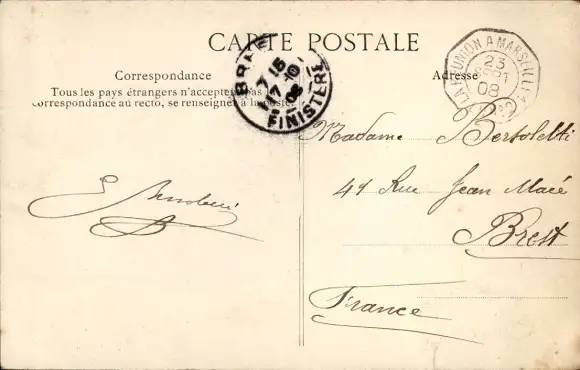 CARTE POSTALE
Correspondance
Tous les pays étrangers n'acceptent pas
correspondance au recto, se renseigner à la poste
BREST
15
17-10
08
FINISTERE
Adresse
LA REUNION A MARSEILLE
23
SEPT
08
Madame Bertoletti
41 Rue Jean Macé
Brest
France